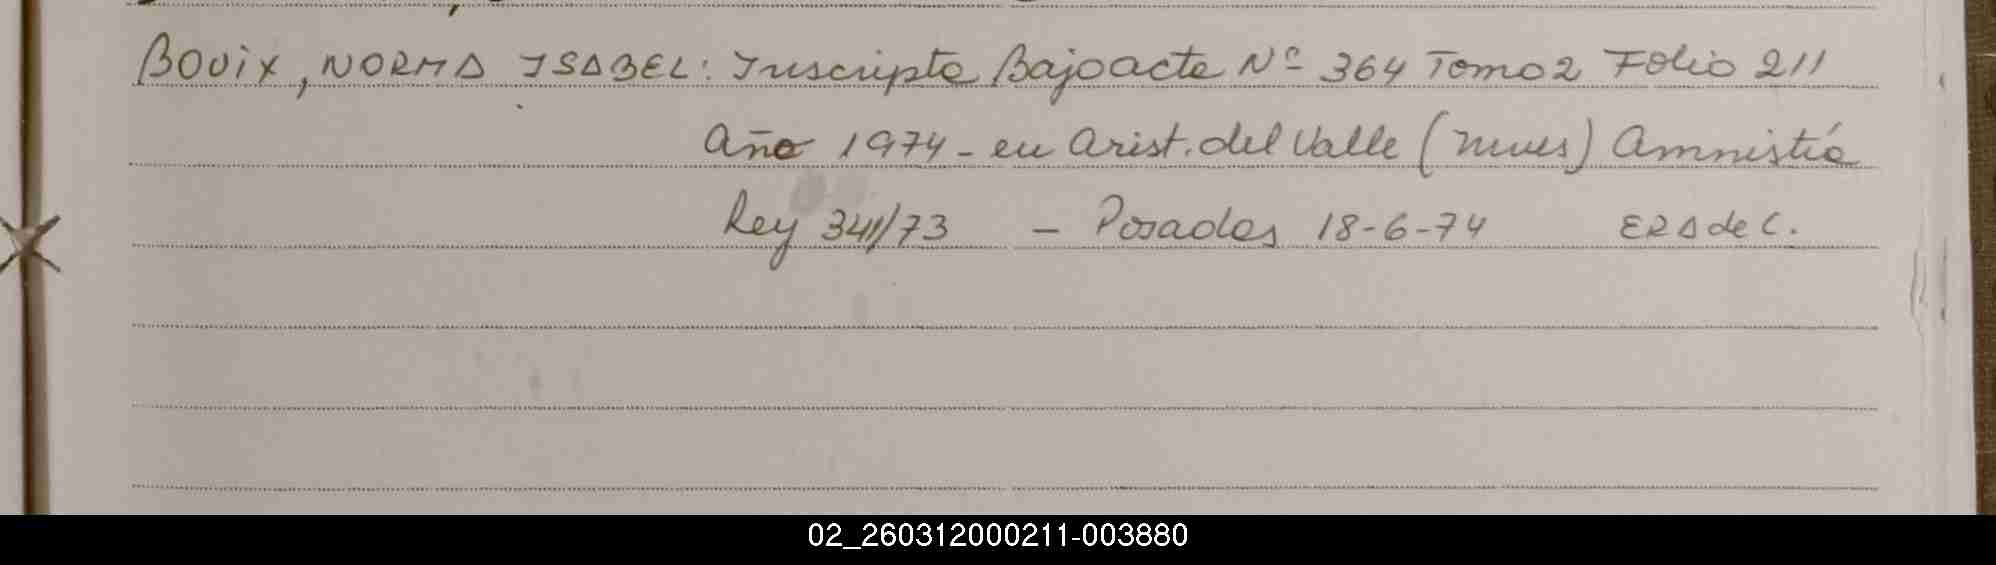 BOUIX, NORMA ISABEL: Inscripta Bajo acta Nº 364 Tomo 2 Folio 211
Año 1974 - en Arist. del Valle (Mnes) Amnistía
Ley 341/73 - Posadas 18-6-74 ERA de C.
02_260312000211-003880